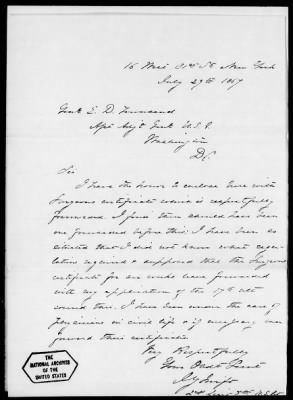 16 West St New York
July 29th 1867
Genl E. D. Townsend
Asst Adj't Genl U.S.A.
Washington
D.C.
Sir
I have the honor to enclose here with
Surgeons certificate which is respectfully
forwarded. I find there should have been
one forwarded before this; I have been so
situated that I did not know what regu-
lations required & supposed that the Surgeons
certificate for six weeks have forwarded
with my application of the 17th ult
would do. I have been under the care of
physicians in civil life & if necessary can
forward their certificates
Very Respectfully
Your Obdt Servt
2nd Lieut
THE NATIONAL ARCHIVES
OF THE
UNITED STATES